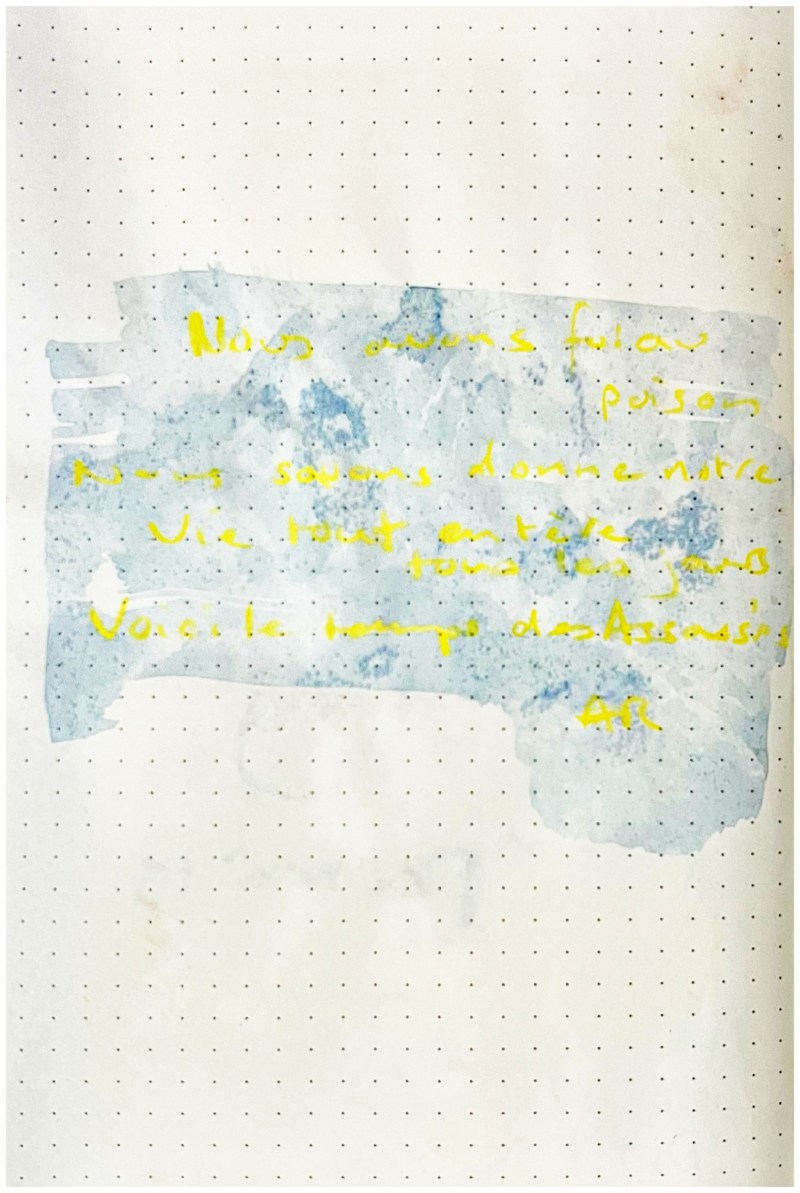 Nous avons foi au
poison
Nous savons donne notre
Vie tout entière
tous les jours
Voici le temps des Assassins
AR